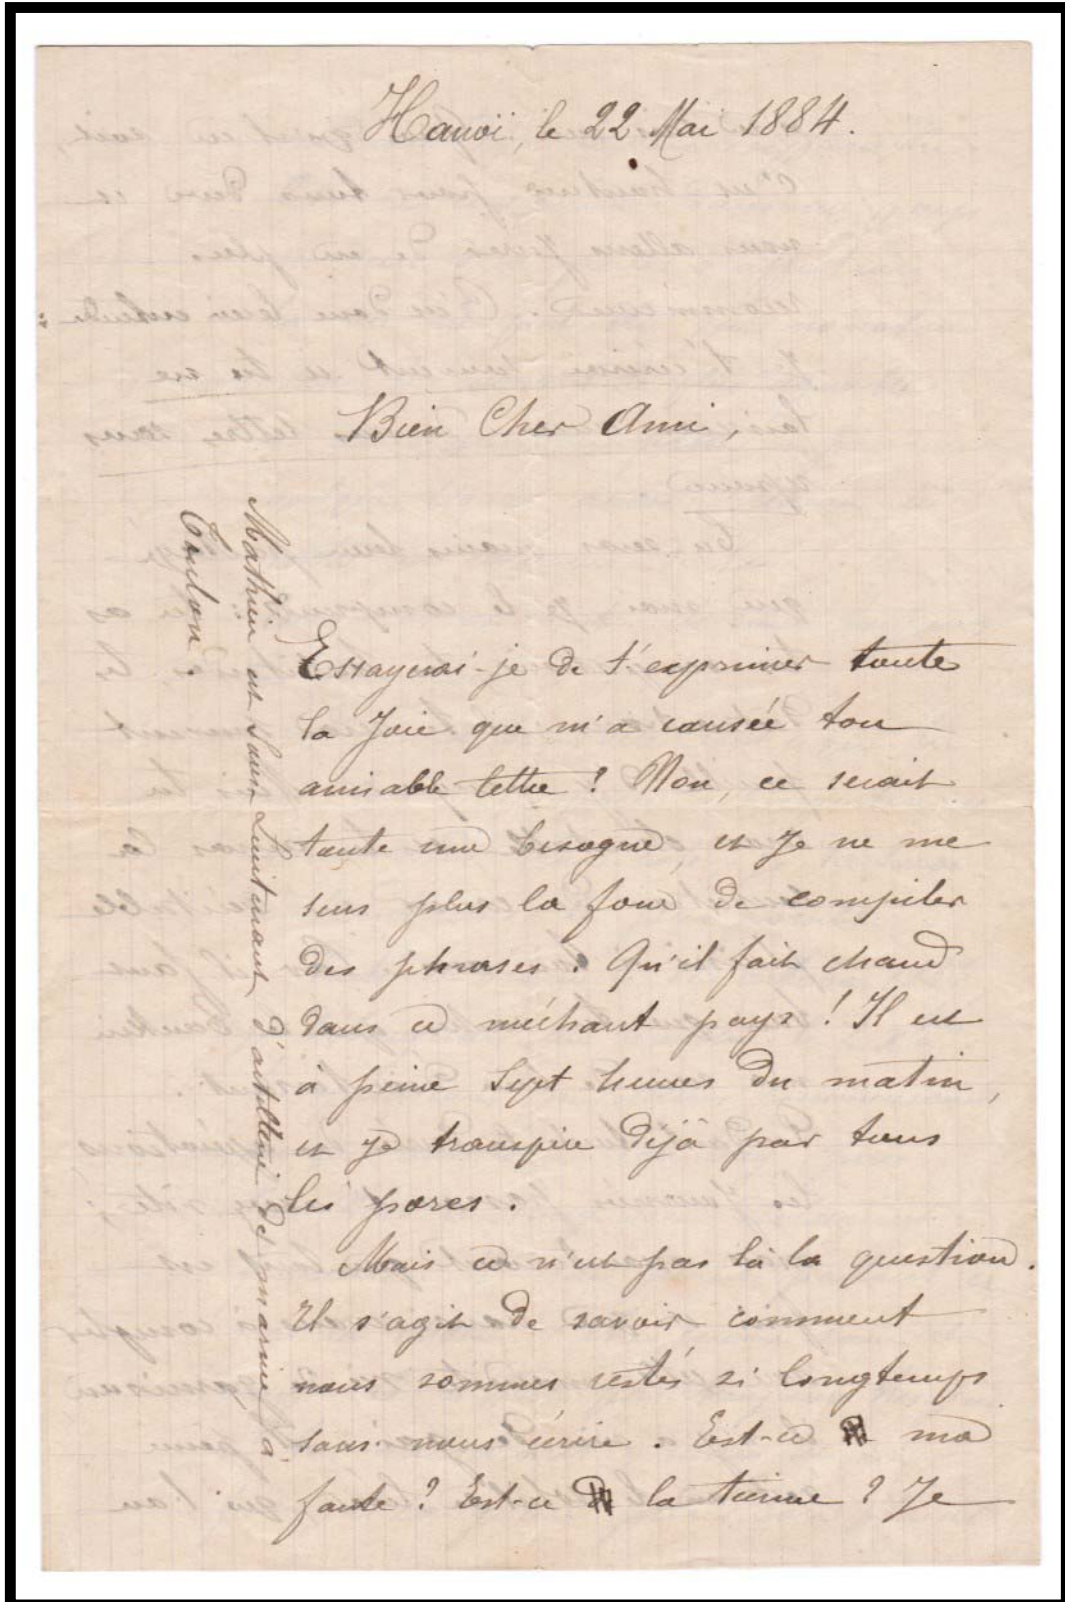 Hanoï, le 22 Mai 1884.
Bien Cher Ami,
Essayerai-je de t'exprimer toute
la Joie que m'a causée ton
amiable lettre ? Non, ce serait
toute une besogne, et Je ne me
sens plus la force de compiler
des phrases. Qu'il fait chaud
dans ce méchant pays ! Il est
à peine Sept heures du matin,
et Je transpire déjà par tous
les pores.
Mais ce n'est pas là la question.
Il s'agit de savoir comment
nous sommes restés si longtemps
sans nous écrire. Est-ce ma
faute ? Est-ce la tienne ? Je
Mathieu est Sous-Lieutenant d'artillerie de marine à
Toulon.